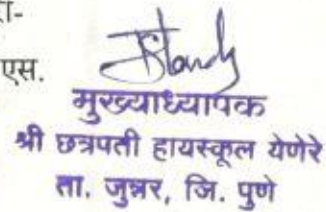 एस.
मुख्याध्यापक
श्री छत्रपती हायस्कूल येणेरे
ता. जुन्नर, जि. पुणे